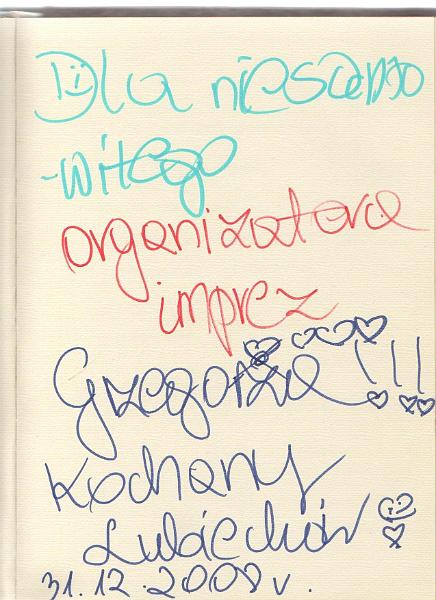 Dla niesamo
-witego
organizatora
imprez
Grzegorza!!!
Kochany
Lubiechów
31.12.2008 r.